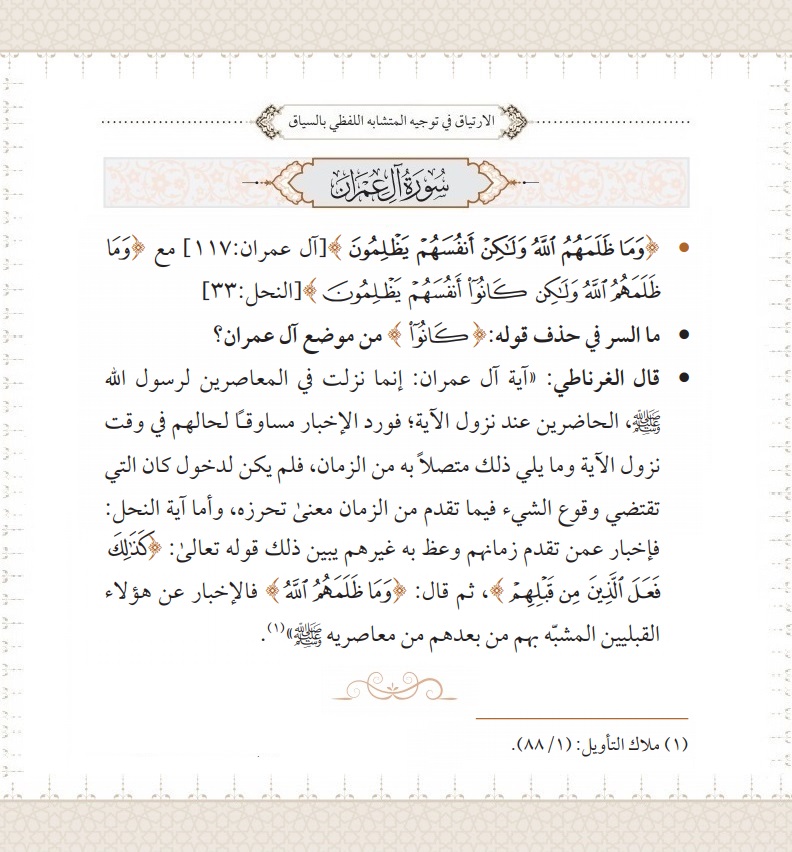 الارتياق في توجيه المتشابه اللفظي بالسياق
سُورَةُ آلِ عِمْرَانَ
• ﴿وَمَا ظَلَمَهُمُ ٱللَّهُ وَلَٰكِنْ أَنفُسَهُمْ يَظْلِمُونَ﴾[آل عمران:١١٧] مع ﴿وَمَا
ظَلَمَهُمُ ٱللَّهُ وَلَٰكِن كَانُوٓا۟ أَنفُسَهُمْ يَظْلِمُونَ﴾[النحل:٣٣]
• ما السر في حذف قوله:﴿كَانُوٓا۟﴾ من موضع آل عمران؟
• قال الغرناطي: «آية آل عمران: إنما نزلت في المعاصرين لرسول الله
ﷺ، الحاضرين عند نزول الآية؛ فورد الإخبار مساوقًا لحالهم في وقت
نزول الآية وما يلي ذلك متصلاً به من الزمان، فلم يكن لدخول كان التي
تقتضي وقوع الشيء فيما تقدم من الزمان معنىٰ تحرزه، وأما آية النحل:
فإخبار عمن تقدم زمانهم وعظ به غيرهم يبين ذلك قوله تعالىٰ: ﴿كَذَٰلِكَ
فَعَلَ ٱلَّذِينَ مِن قَبْلِهِمْ﴾، ثم قال: ﴿وَمَا ظَلَمَهُمُ ٱللَّهُ﴾ فالإخبار عن هؤلاء
القبليين المشبّه بهم من بعدهم من معاصريه ﷺ»(١).
(١) ملاك التأويل: (١/ ٨٨).